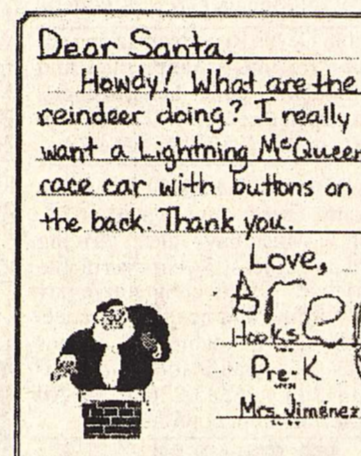 Dear Santa,
Howdy! What are the
reindeer doing? I really
want a Lightning McQueen
race car with buttons on
the back. Thank you.
Love,
Hooks
Pre-K
Mrs. Jiménez